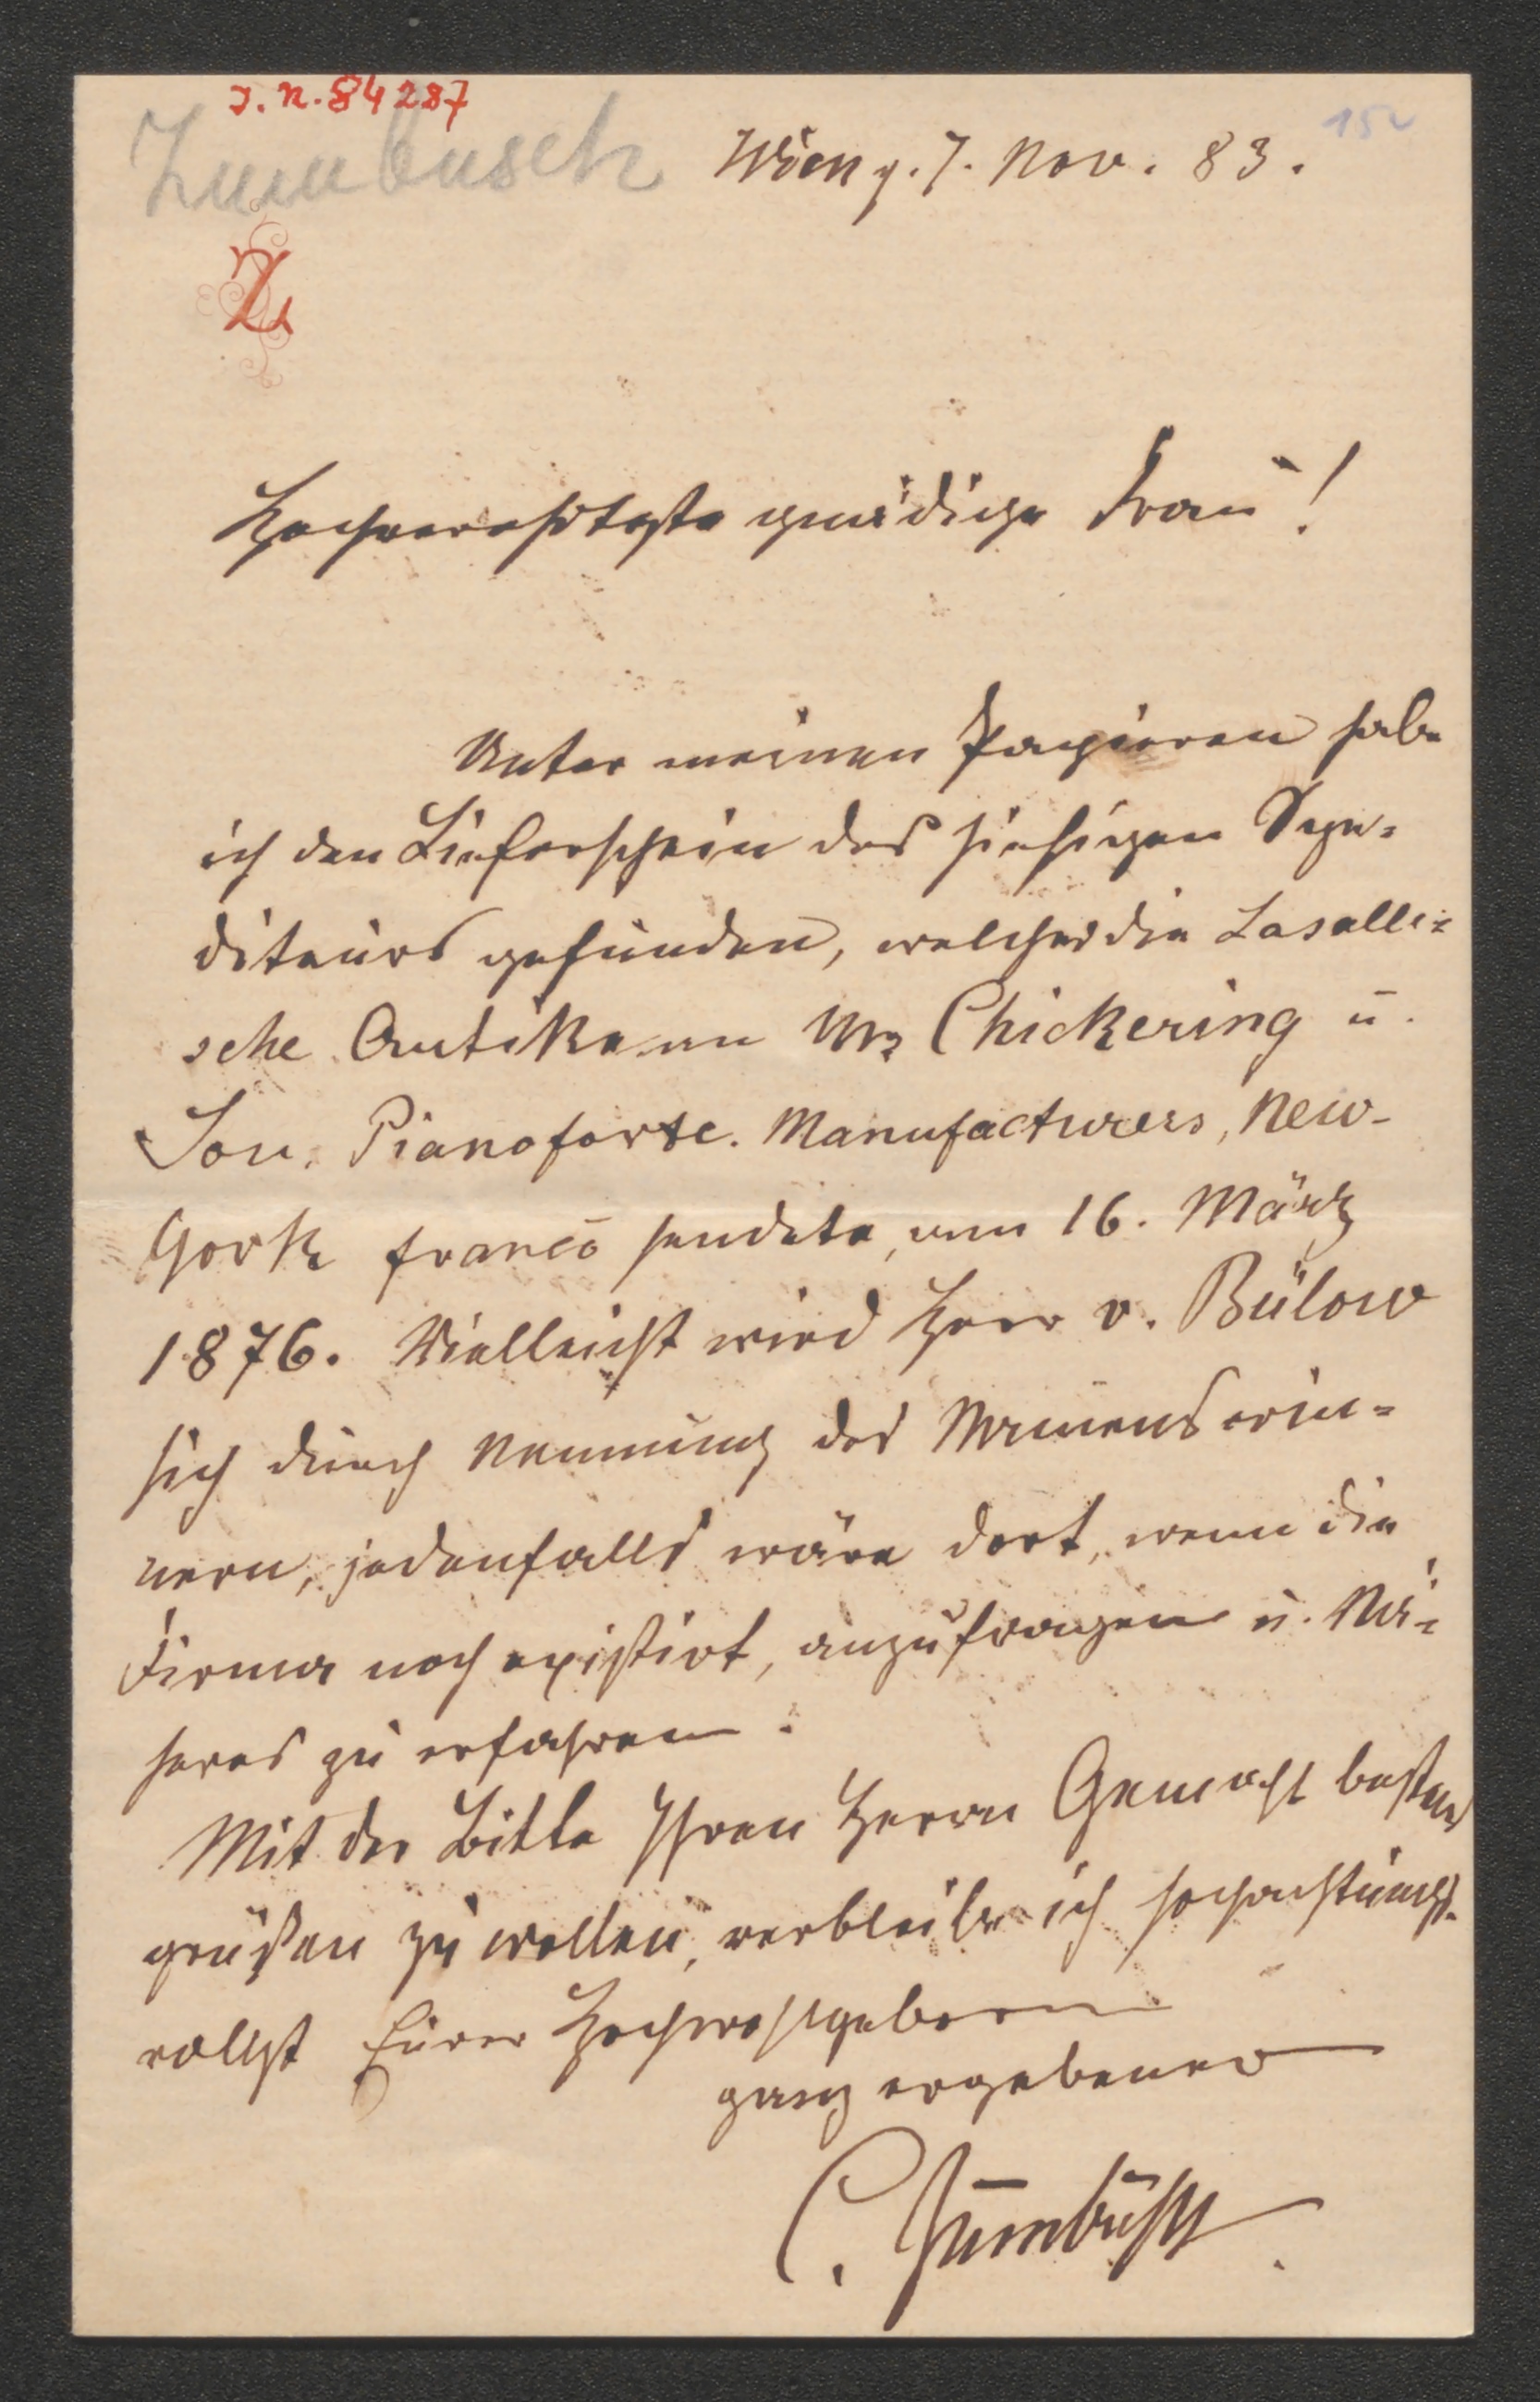 J. N. 84287
152
Zumbusch
Wien d. 7. Nov. 83.
Z
Hochverehrteste gnädige Frau!
Unter meinen Papieren habe
ich den Lieferschein des hiesigen Spe-
diteurs gefunden, welcher die Lasalle-
sche Antike an Mr Chickering u.
Son. Pianoforte. Manufacturers, New-
York franco sendete, am 16. März
1876. Vielleicht wird Herr v. Bülow
sich durch Nennung des Namens erin-
nern, jedenfalls wäre dort, wenn die
Firma noch existirt, anzufragen u. Nä-
heres zu erfahren.
Mit der Bitte Ihren Herrn Gemahl bestens
grüßen zu wollen, verbleibe ich hochachtungs-
vollst Eurer Hochwohlgeboren
ganz ergebener
C. Zumbusch